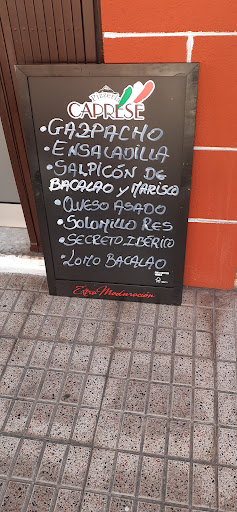 CAPRESE
• GAZPACHO
• ENSALADILLA
• SALPICÓN DE
BACALAO Y MARISCO
• QUESO ASADO
• SOLOMILLO RES
• SECRETO IBÉRICO
• LOMO BACALAO
Extra Maduración